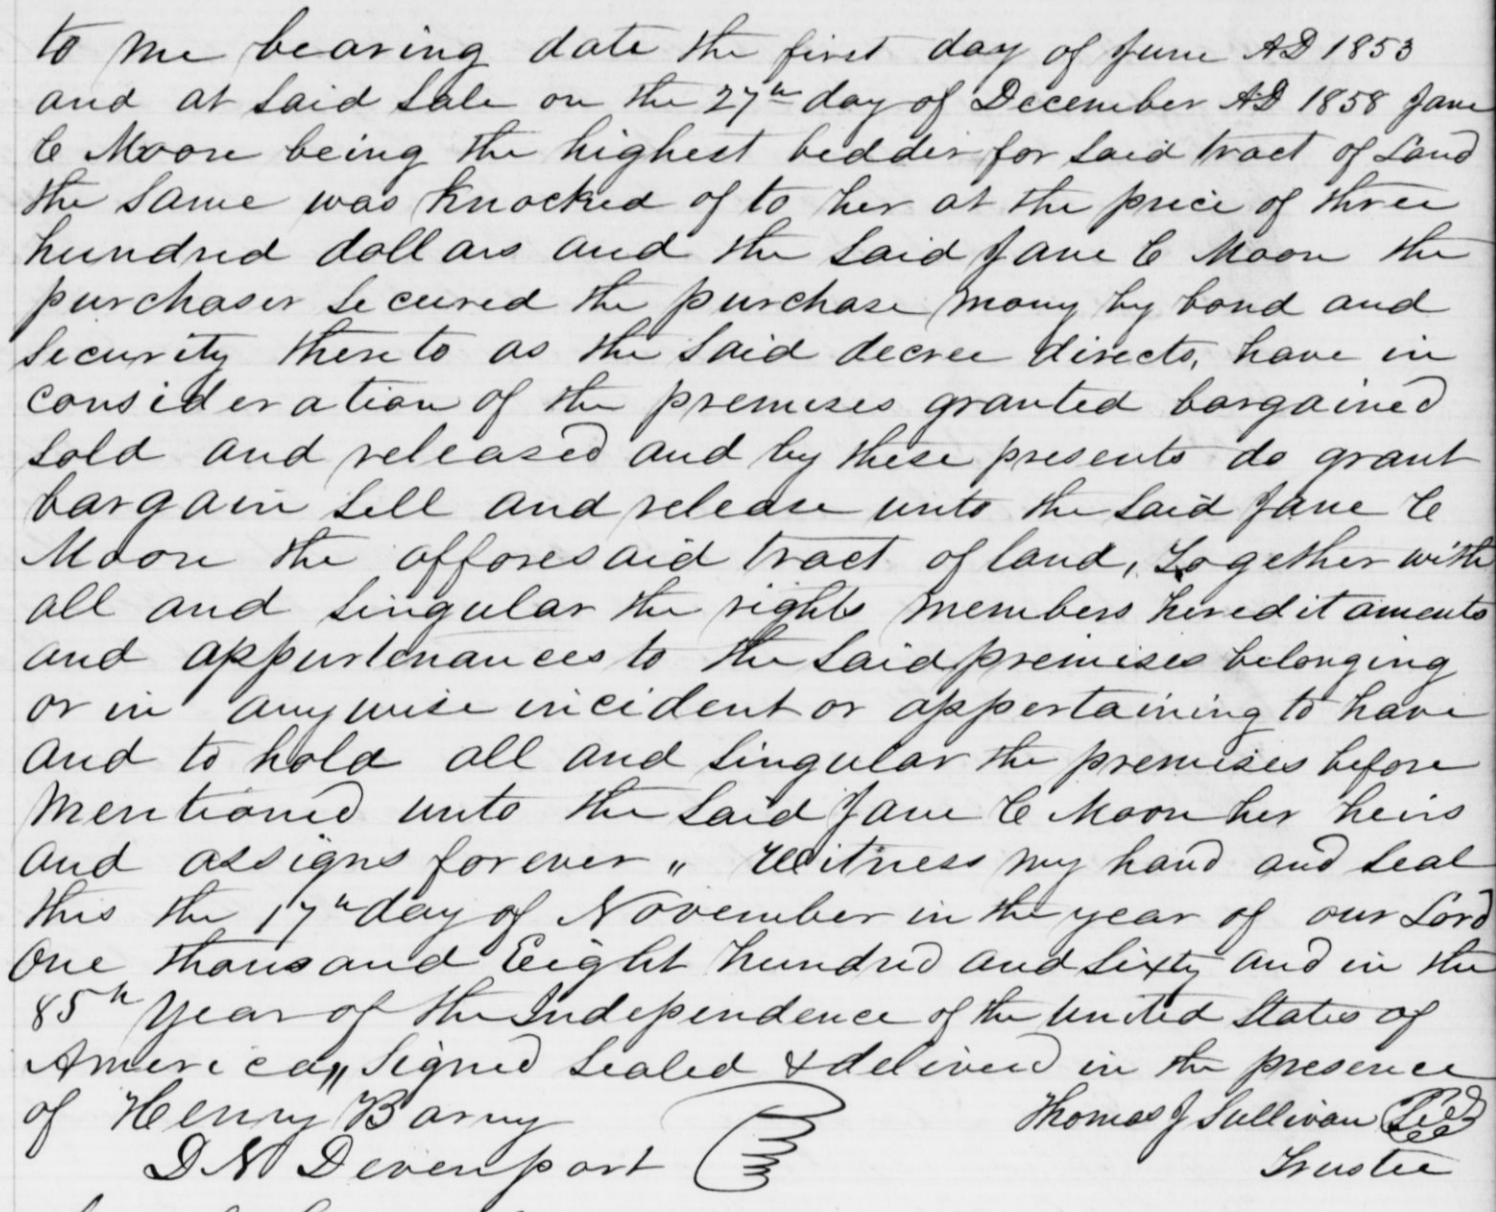 to me bearing date the first day of June AD 1853
and at said sale on the 27th day of December AD 1858 Jane
C Moore being the highest bedder for said tract of Land
the same was knocked of to her at the price of three
hundred dollars and the said Jane C Moore the
purchaser secured the purchase mony by bond and
security thereto as the said decree directs, have in
consideration of the premises granted bargained
sold and released and by these presents do grant
bargain sell and release unto the said Jane C
Moore the afforesaid tract of land, together with
all and singular the rights members hereditaments
and appurtenances to the said premises belonging
or in anywise incident or appertaining to have
and to hold all and singular the premises before
mentioned unto the said Jane C Moore her heirs
and assigns forever „ Witness my hand and seal
this the 17th day of November in the year of our Lord
One thousand Eight hundred and sixty and in the
85th year of the Independence of the United States of
America„ Signed sealed & deliverd in the presence
of Henry Barny Thomas J Sullivan
D N Devenport Trustee